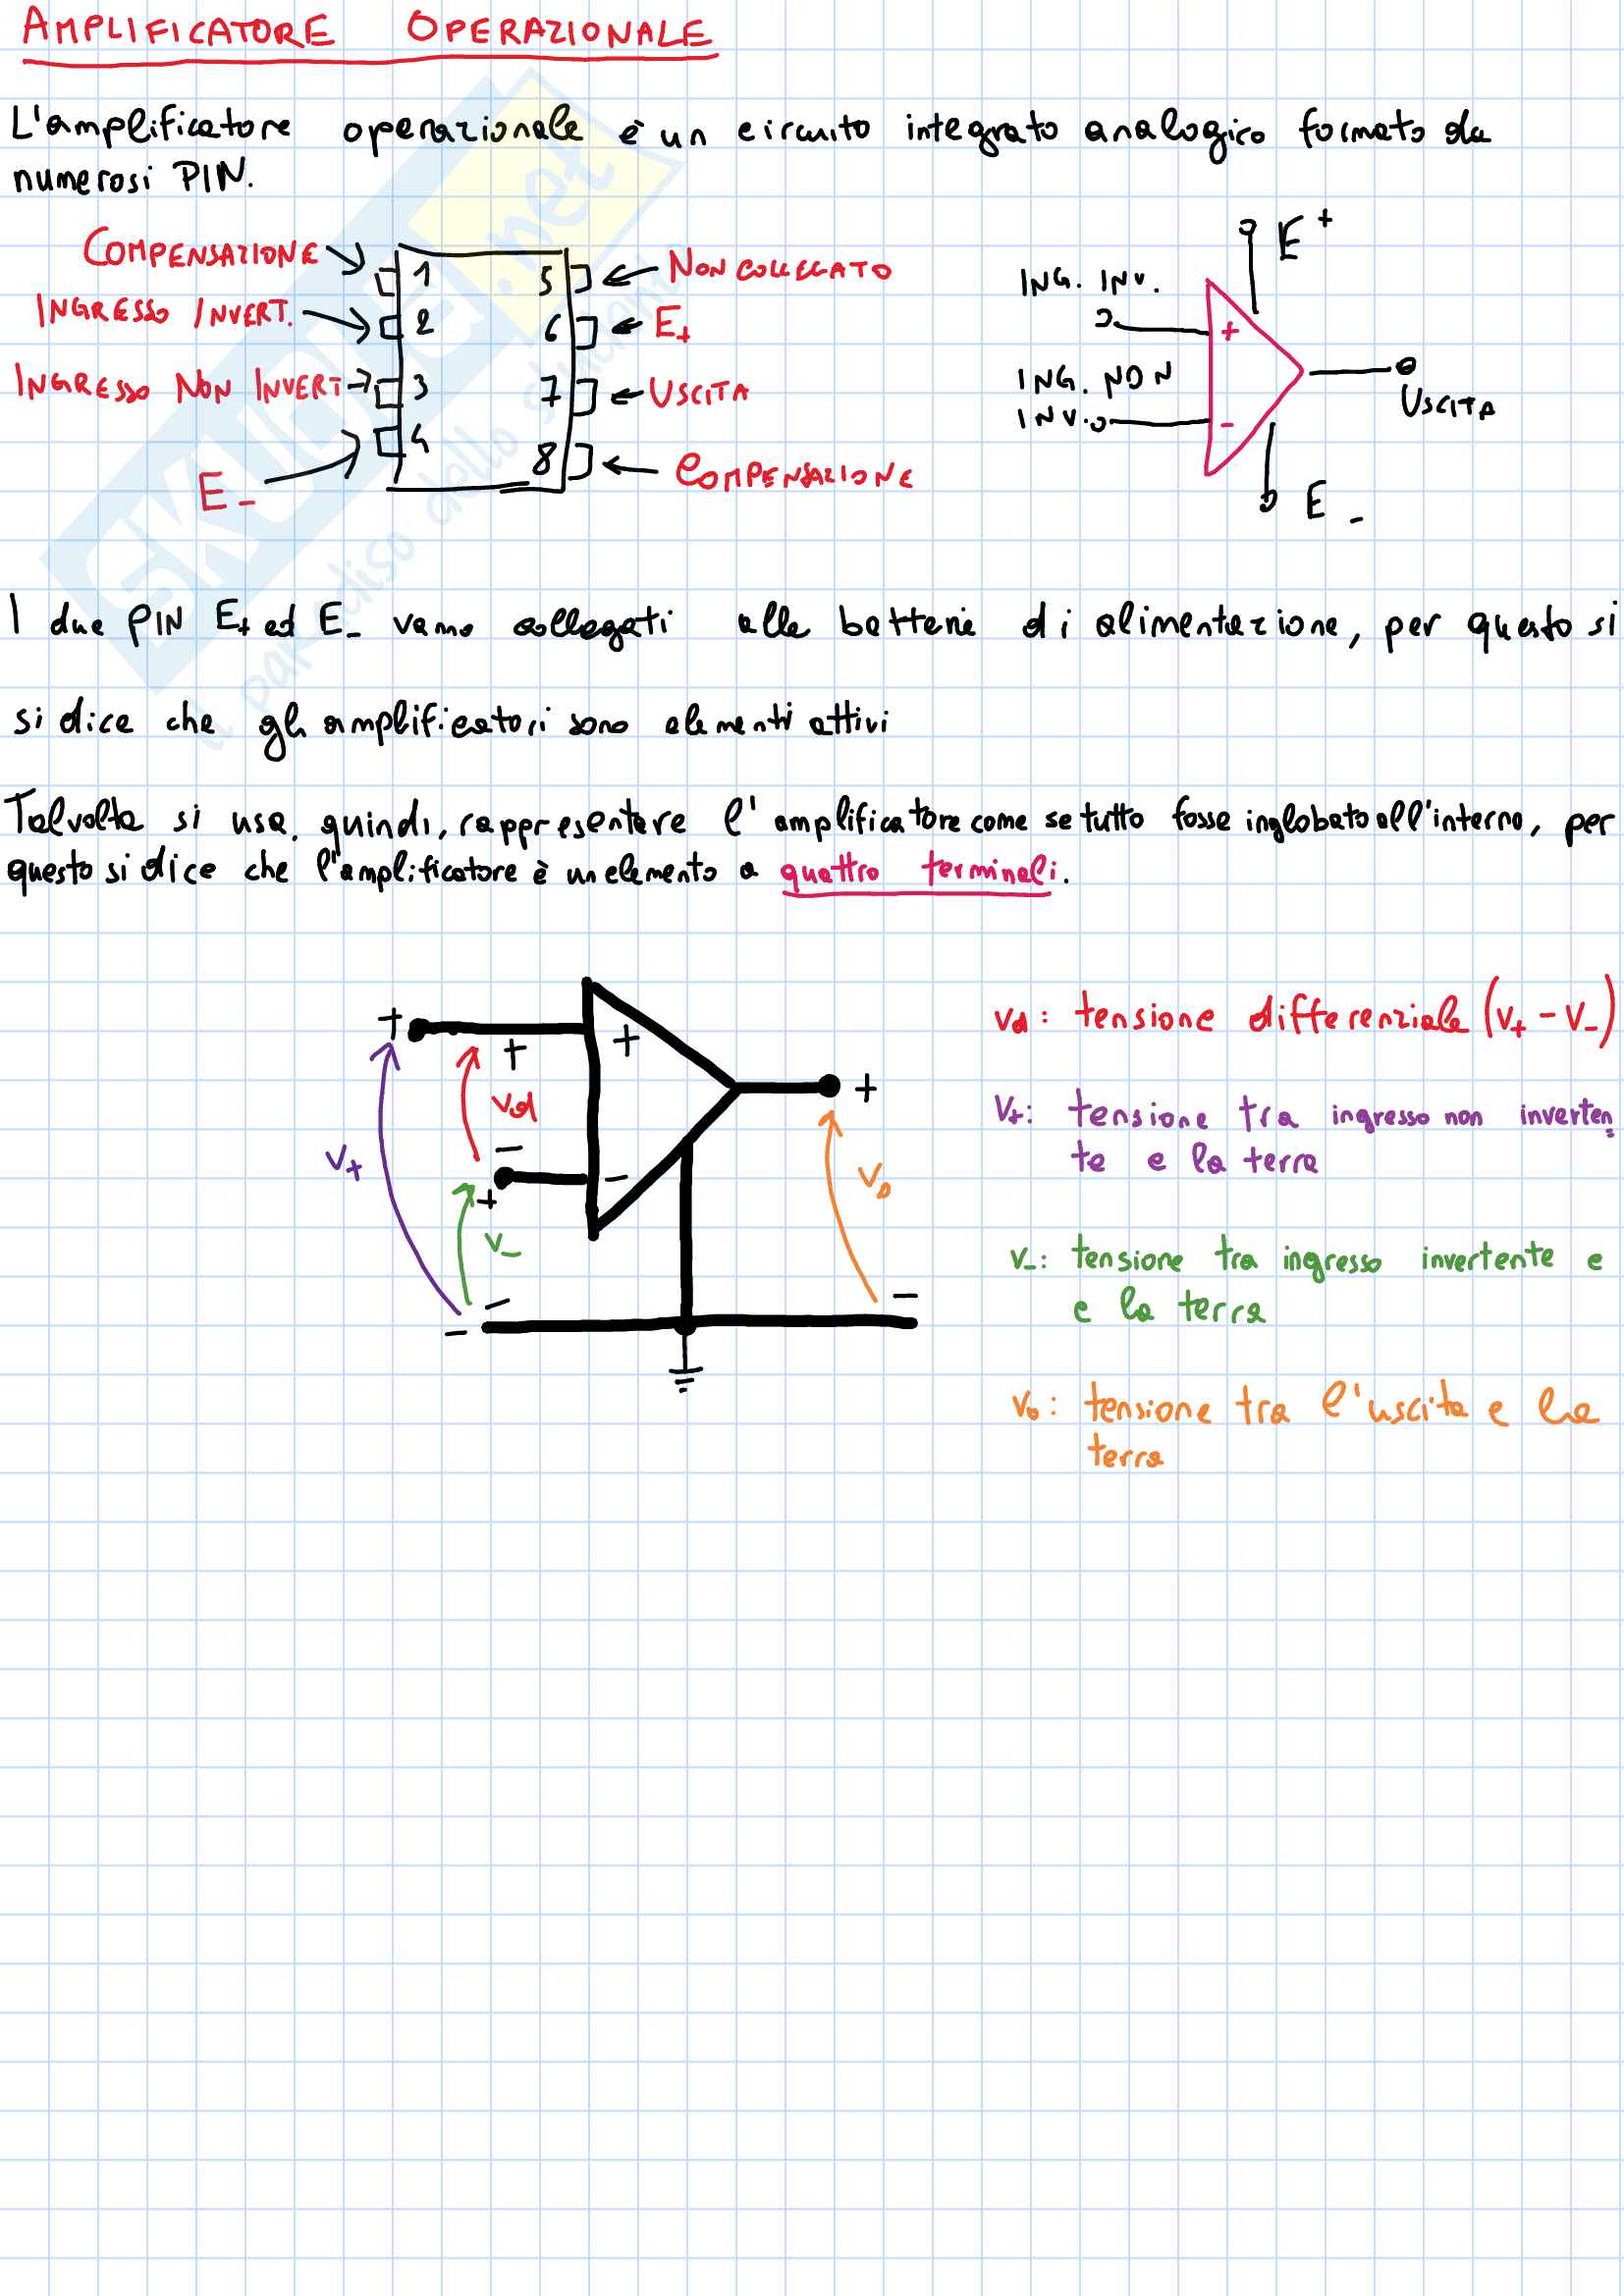 AMPLIFICATORE OPERAZIONALE
L'amplificatore operazionale è un circuito integrato analogico formato da
numerosi PIN.
COMPENSAZIONE
INGRESSO INVERT.
INGRESSO NON INVERT
E-
1
2
3
4
5
6
7
8
NON COLLEGATO
E+
USCITA
COMPENSAZIONE
E+
ING. INV.
+
ING. NON
INV.
-
USCITA
E-
I due PIN E+ ed E- vanno collegati alle batterie di alimentazione, per questo si
si dice che gli amplificatori sono elementi attivi
Talvolta si usa, quindi, rappresentare l'amplificatore come se tutto fosse inglobato all'interno, per
questo si dice che l'amplificatore è un elemento a quattro terminali.
+
+
+
vd
-
-
+
v+
v-
-
-
+
vo
-
vd: tensione differenziale (v+ - v-)
v+: tensione tra ingresso non inverten
te e la terra
v-: tensione tra ingresso invertente e
e la terra
vo: tensione tra l'uscita e la
terra
SKUOLA.net
il paradiso dello studente